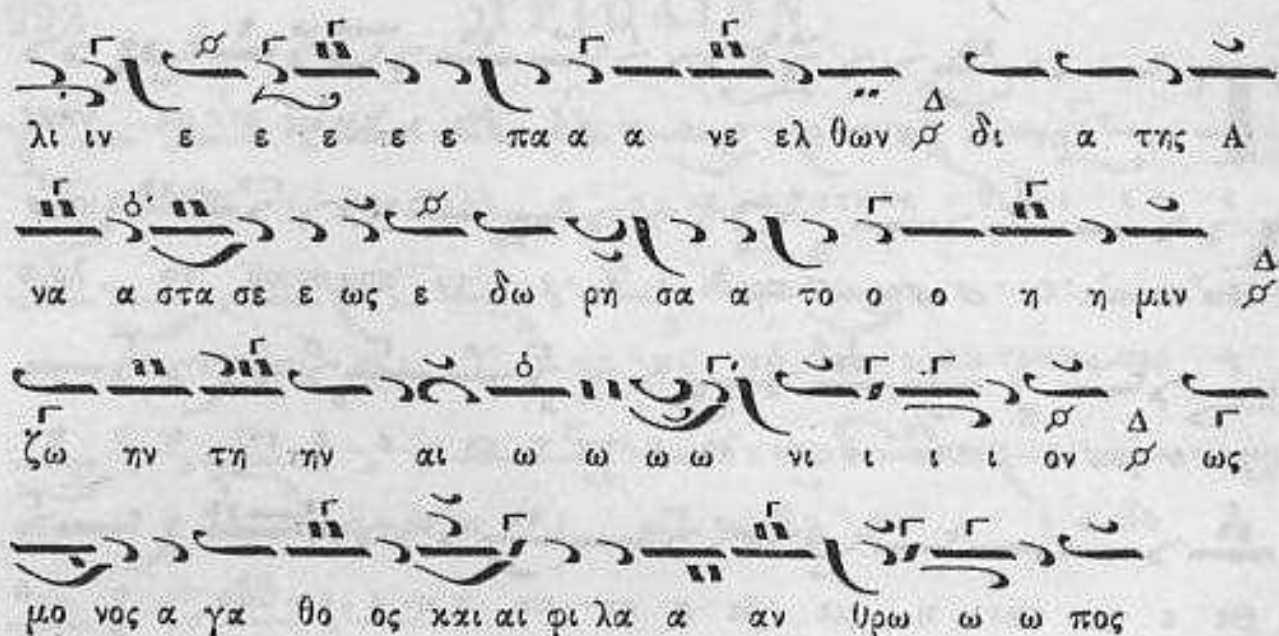 λι ιν ε ε ε ε ε πα α α νε ελ θων Δ δι α της Α
να α στα σε ε ως ε δω ρη σα α το ο ο η η μιν Δ
ζω ην τη ην αι ω ω ω ω νι ι ι ι ον Δ ως
μο νος α γα θο ος και αι φι λα α αν θρω ω ω πος